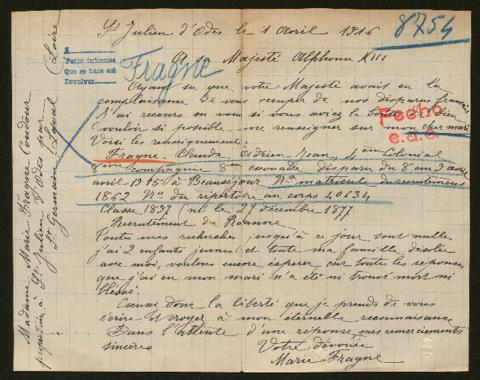 St Julien d'Odes le 1 Avril 1916
8754
A
Pedir informes
Que se hace así
Devolver
A Sa Majesté Alphonse XIII
Fragne
Ayant su que votre Majesté avait eu la
complaisance de vous occuper de nos disparus français
J'ai recours en vous si vous aviez la bonté de bien
vouloir si possible me renseigner sur mon cher mari
Fecho
e.a.
Voici les renseignements:
Fragne Claude Adrien Jean 4eme Colonial
8eme compagnie 8eme escouade disparu du 8 au 9
avril 1915 à Beauséjour No matricule du recrutement
1862 No du répertoire au corps 40634
Classe 1897 (né le 29 décembre 1877
Recrutement de Roanne
Toutes mes recherches jusqu'à ce jour sont nulles
j'ai 2 enfants jeunes et toute ma famille désolée
avec moi, voulons encore espérer car toutes les réponses
que j'ai eu mon mari n'a été ni trouvé mort ni
blessé.
Excusez donc la liberté que je prends de vous
écrire et croyez à mon éternelle reconnaissance
Dans l'attente d'une réponse mes remerciements
sincères
Votre dévouée
Marie Fragne
Madame Marie Fragne
propriétaire à St Julien d'Odes par
St Germain Laval
(Loire)